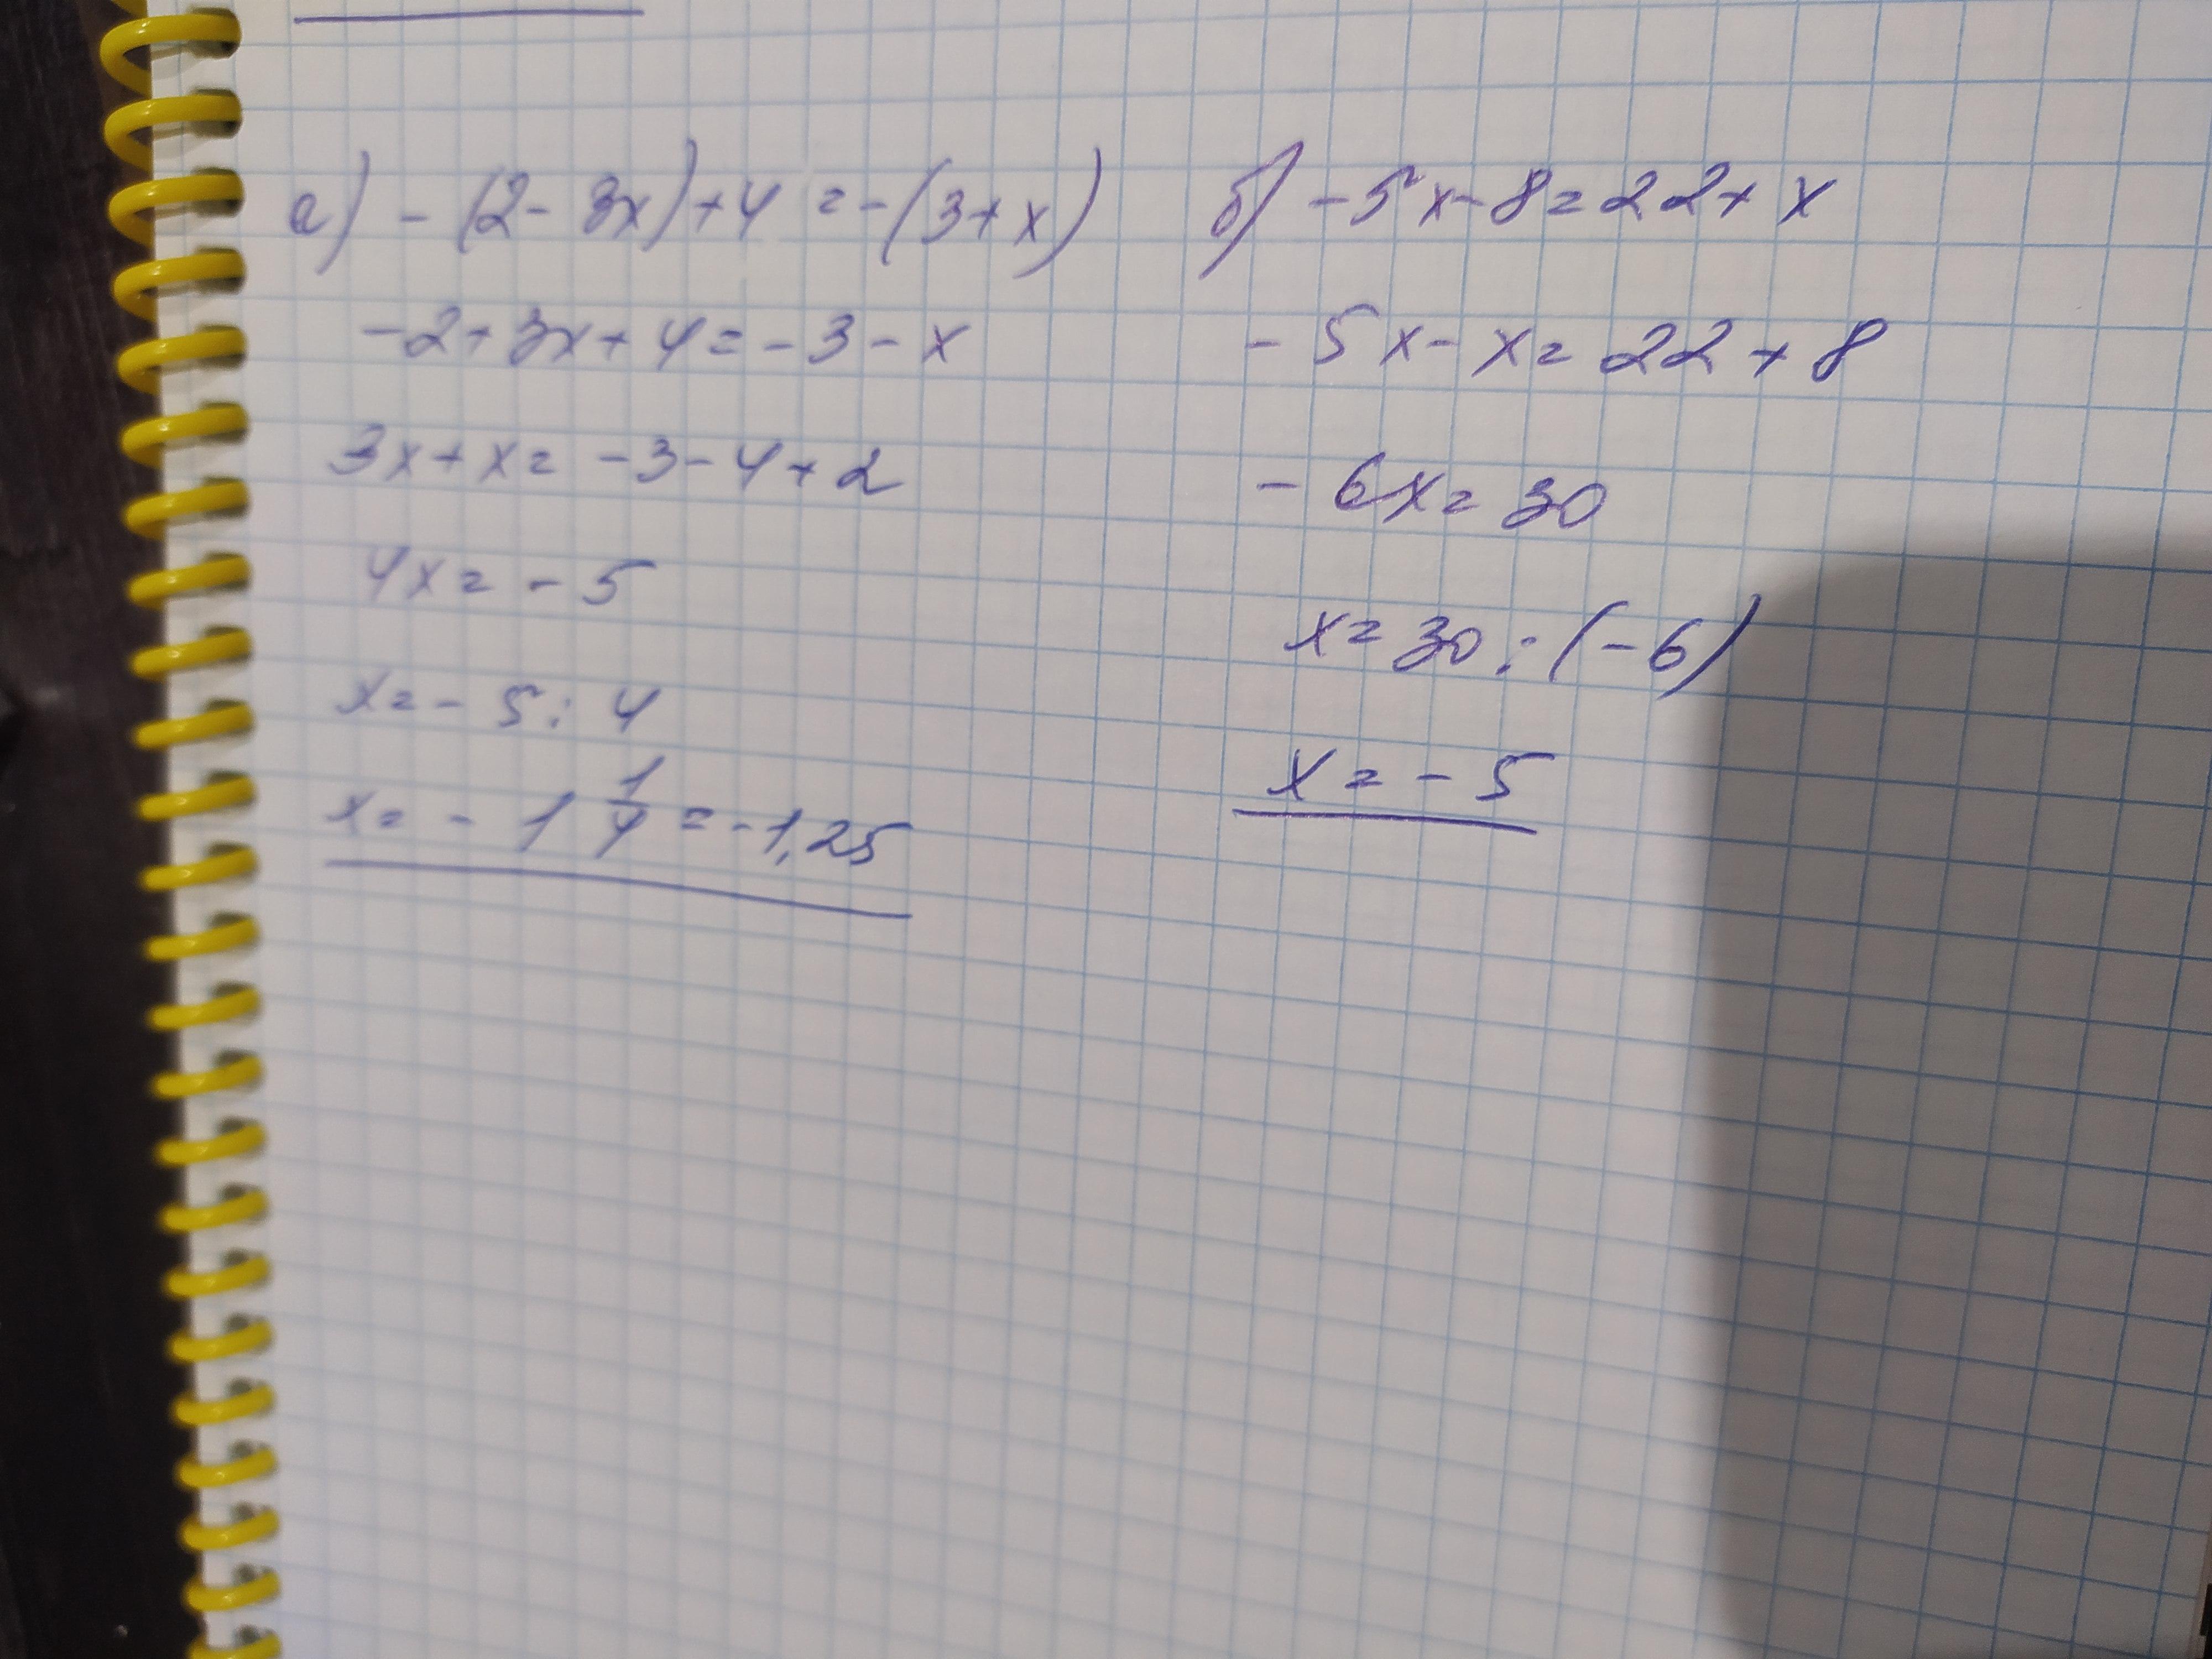 а) -(2-3x)+4=-(3+x)
-2+3x+4=-3-x
3x+x=-3-4+2
4x=-5
x=-5:4
x=-1 1/4=-1,25
б) -5x-8=22+x
-5x-x=22+8
-6x=30
x=30:(-6)
x=-5